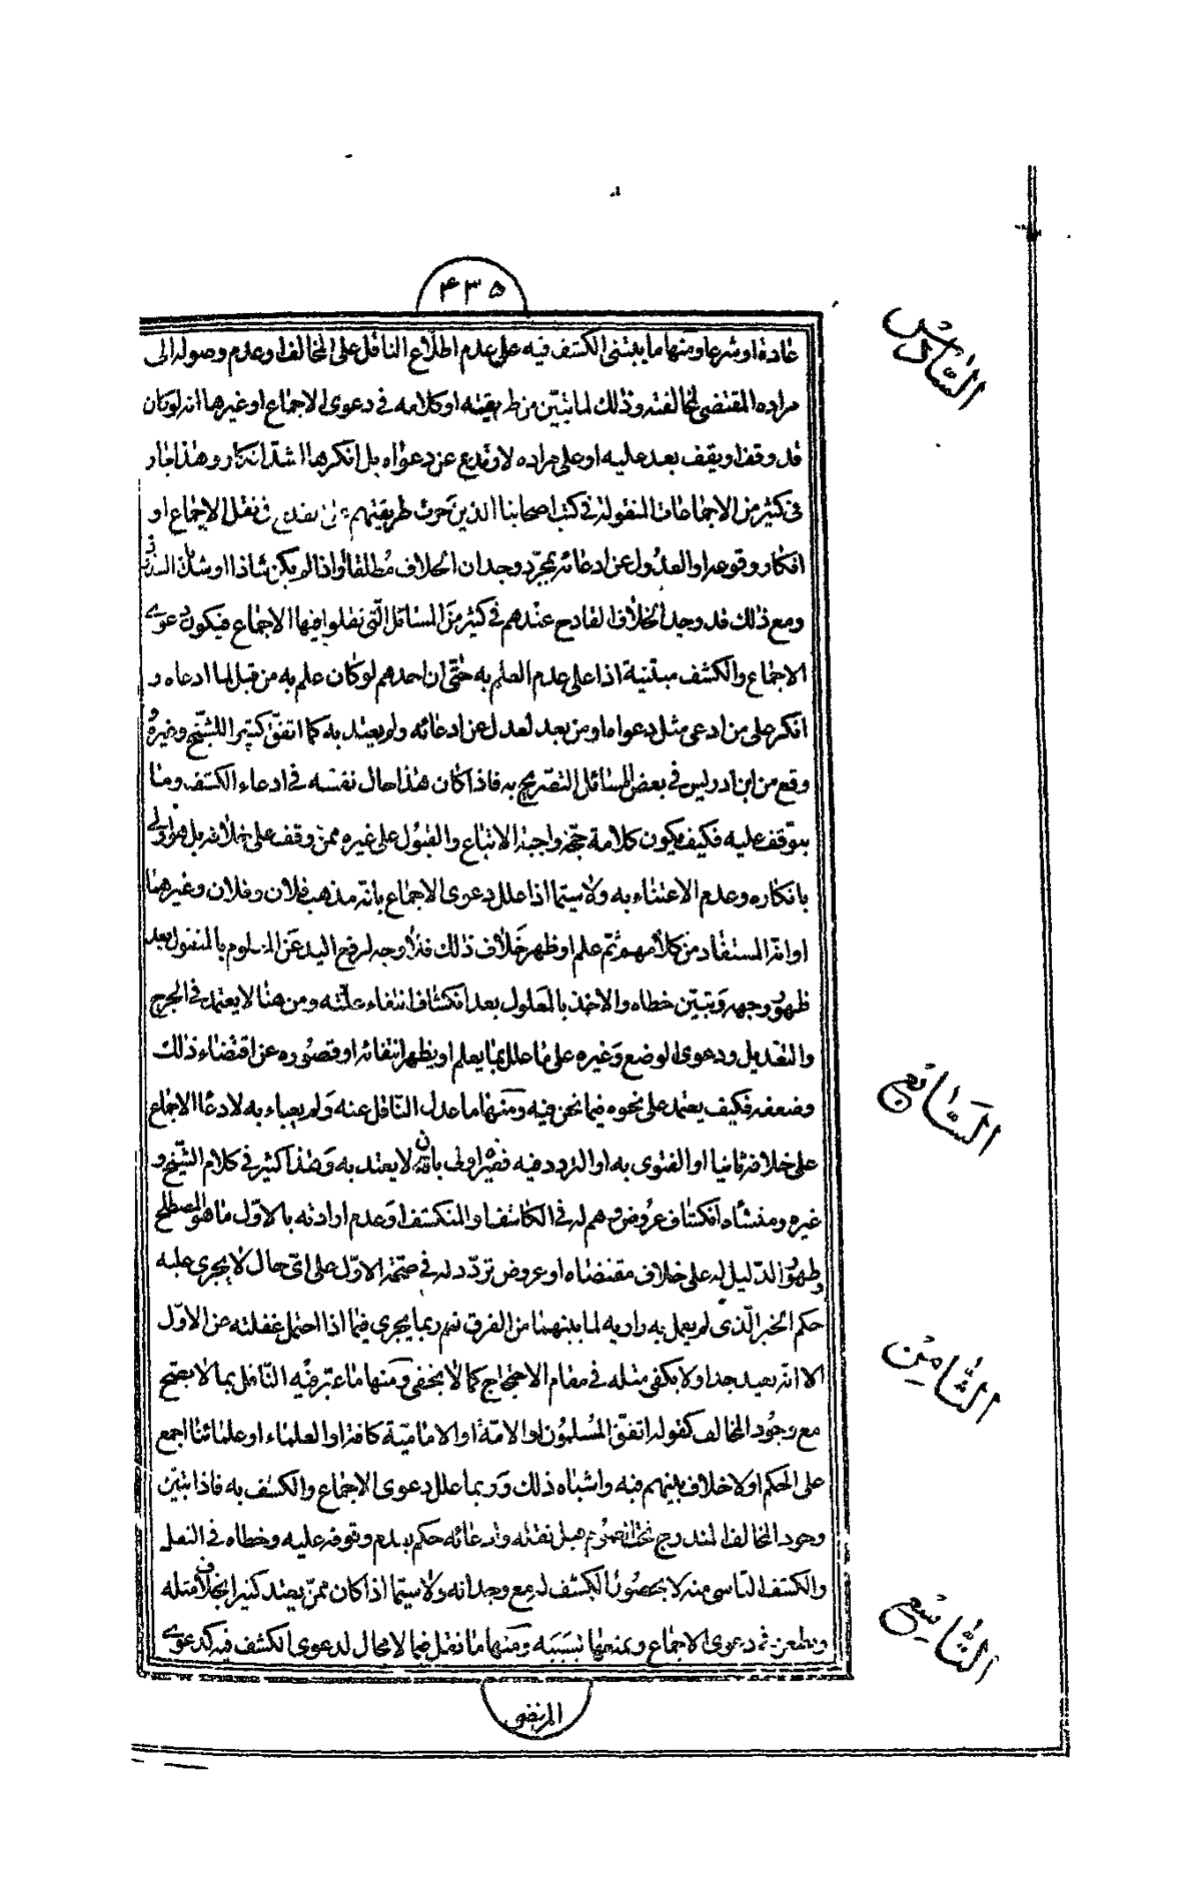 ۴۳۵
عادة او شرعا ومنها ما يبتنى الكشف فيه على عدم اطلاع الناقل على المخالف او عدم وصوله الى
السادس
مراده المقتضى لمخالفته وذلك لما تبيّن من طريقته او كلامه فى دعوى الاجماع او غيرها انه لو كان
قد وقف او يقف بعد عليه او على مراده لارتدع عن دعواه بل انكرها اشدّ انكار وهذا جار
فى كثير من الاجماعات المنقولة فى كتب اصحابنا الذين جرت طريقتهم فى نقل الاجماع او
انكار وقوعه او العدول عن ادعائه بمجرّد وجدان الخلاف مُطلقا او اذا لم يكن شاذا او
ومع ذلك قد وجد الخلاف القادح عندهم فى كثير من المسائل الّتى نقلوا فيها الاجماع فيكون دعوى
الاجماع والكشف مبتنية اذا على عدم العلم به حتى ان احدهم لو كان علم به من قبل لما ادعاه و
انكر على من ادعى مثل دعواه او من بعد لعدل عن ادعائه ولم يعتد به كما اتفق كثيرا للشيخ وغيره
وقع من ابن ادريس فى بعض المسائل التصريح به فاذا كان هذا حال نفسه فى ادعاء الكشف وما
يتوقف عليه فكيف يكون كلامه حجّة واجبة الاتباع والقبول على غيره ممن وقف على خلافه بل هو اولى
بانكاره وعدم الاعتناء به ولا سيّما اذا علل دعوى الاجماع بانه مذهب فلان وفلان وغيرهما
او انه المستفاد من كلامهم ثمّ علم او ظهر خلاف ذلك فلا وجه لرفع اليد عن المعلوم بالمنقول بعد
ظهور وجهه وتبيّن خطاه والاخذ بالمعلول بعد انكشاف انتفاء علّته ومن هنا لا يعتمد فى الجرح
والتعديل ودعوى الوضع وغيره على ما علل بما يعلم او يظهر انتفائه او قصوره عن اقتضاء ذلك
وضعفه فكيف يعتمد على نحوه فيما نحن فيه ومنها ما عدل النّاقل عنه ولم يعباء به لادعاء الاجماع
السّابع
على خلافه ثانيا او الفتوى به او التردد فيه فغيره اولى بان لا يعتد به وهذا كثير فى كلام الشّيخ و
غيره ومنشاه انكشاف عروض وهم له فى الكاشف او المنكشف او عدم ارادته بالاول ما هو المصطلح
وظهور الدّليل له على خلاف مقتضاه او عروض تردّد له فى صحّة الاوّل على اىّ حال لا يجرى عليه
حكم الخبر الّذى لم يعمل به راويه لما بينهما من الفرق نعم ربما يجرى فيما اذا احتمل غفلته عن الاوّل
الا انّه بعيد جدا ولا يكفى مثله فى مقام الاحتجاج كما لا يخفى ومنها ما عبّر فيه النّاقل بما لا يصحّ
الثّامن
مع وجود المخالف كقوله اتفق المُسلمون او الامّة او الاماميّة كافة او العلماء او علمائنا اجمع
على الحكم او لا خلاف بينهم فيه واشباه ذلك وربما علل دعوى الاجماع والكشف به فاذا تبيّن
وجود المخالف المندرج تحت العموم قبل نقله وادعائه حكم بعدم وقوفه عليه وخطاه فى النقل
والكشف النّاشى منه لا بحصول الكشف له مع وجدانه ولا سيّما اذا كان ممّن يعتد كثيرا بخلاف مثله
ويطعن فى دعوى الاجماع ويمنعها بسببه ومنها ما نقل فيما لا مجال لدعوى الكشف فيه كدعوى
التّاسع
المرتضى